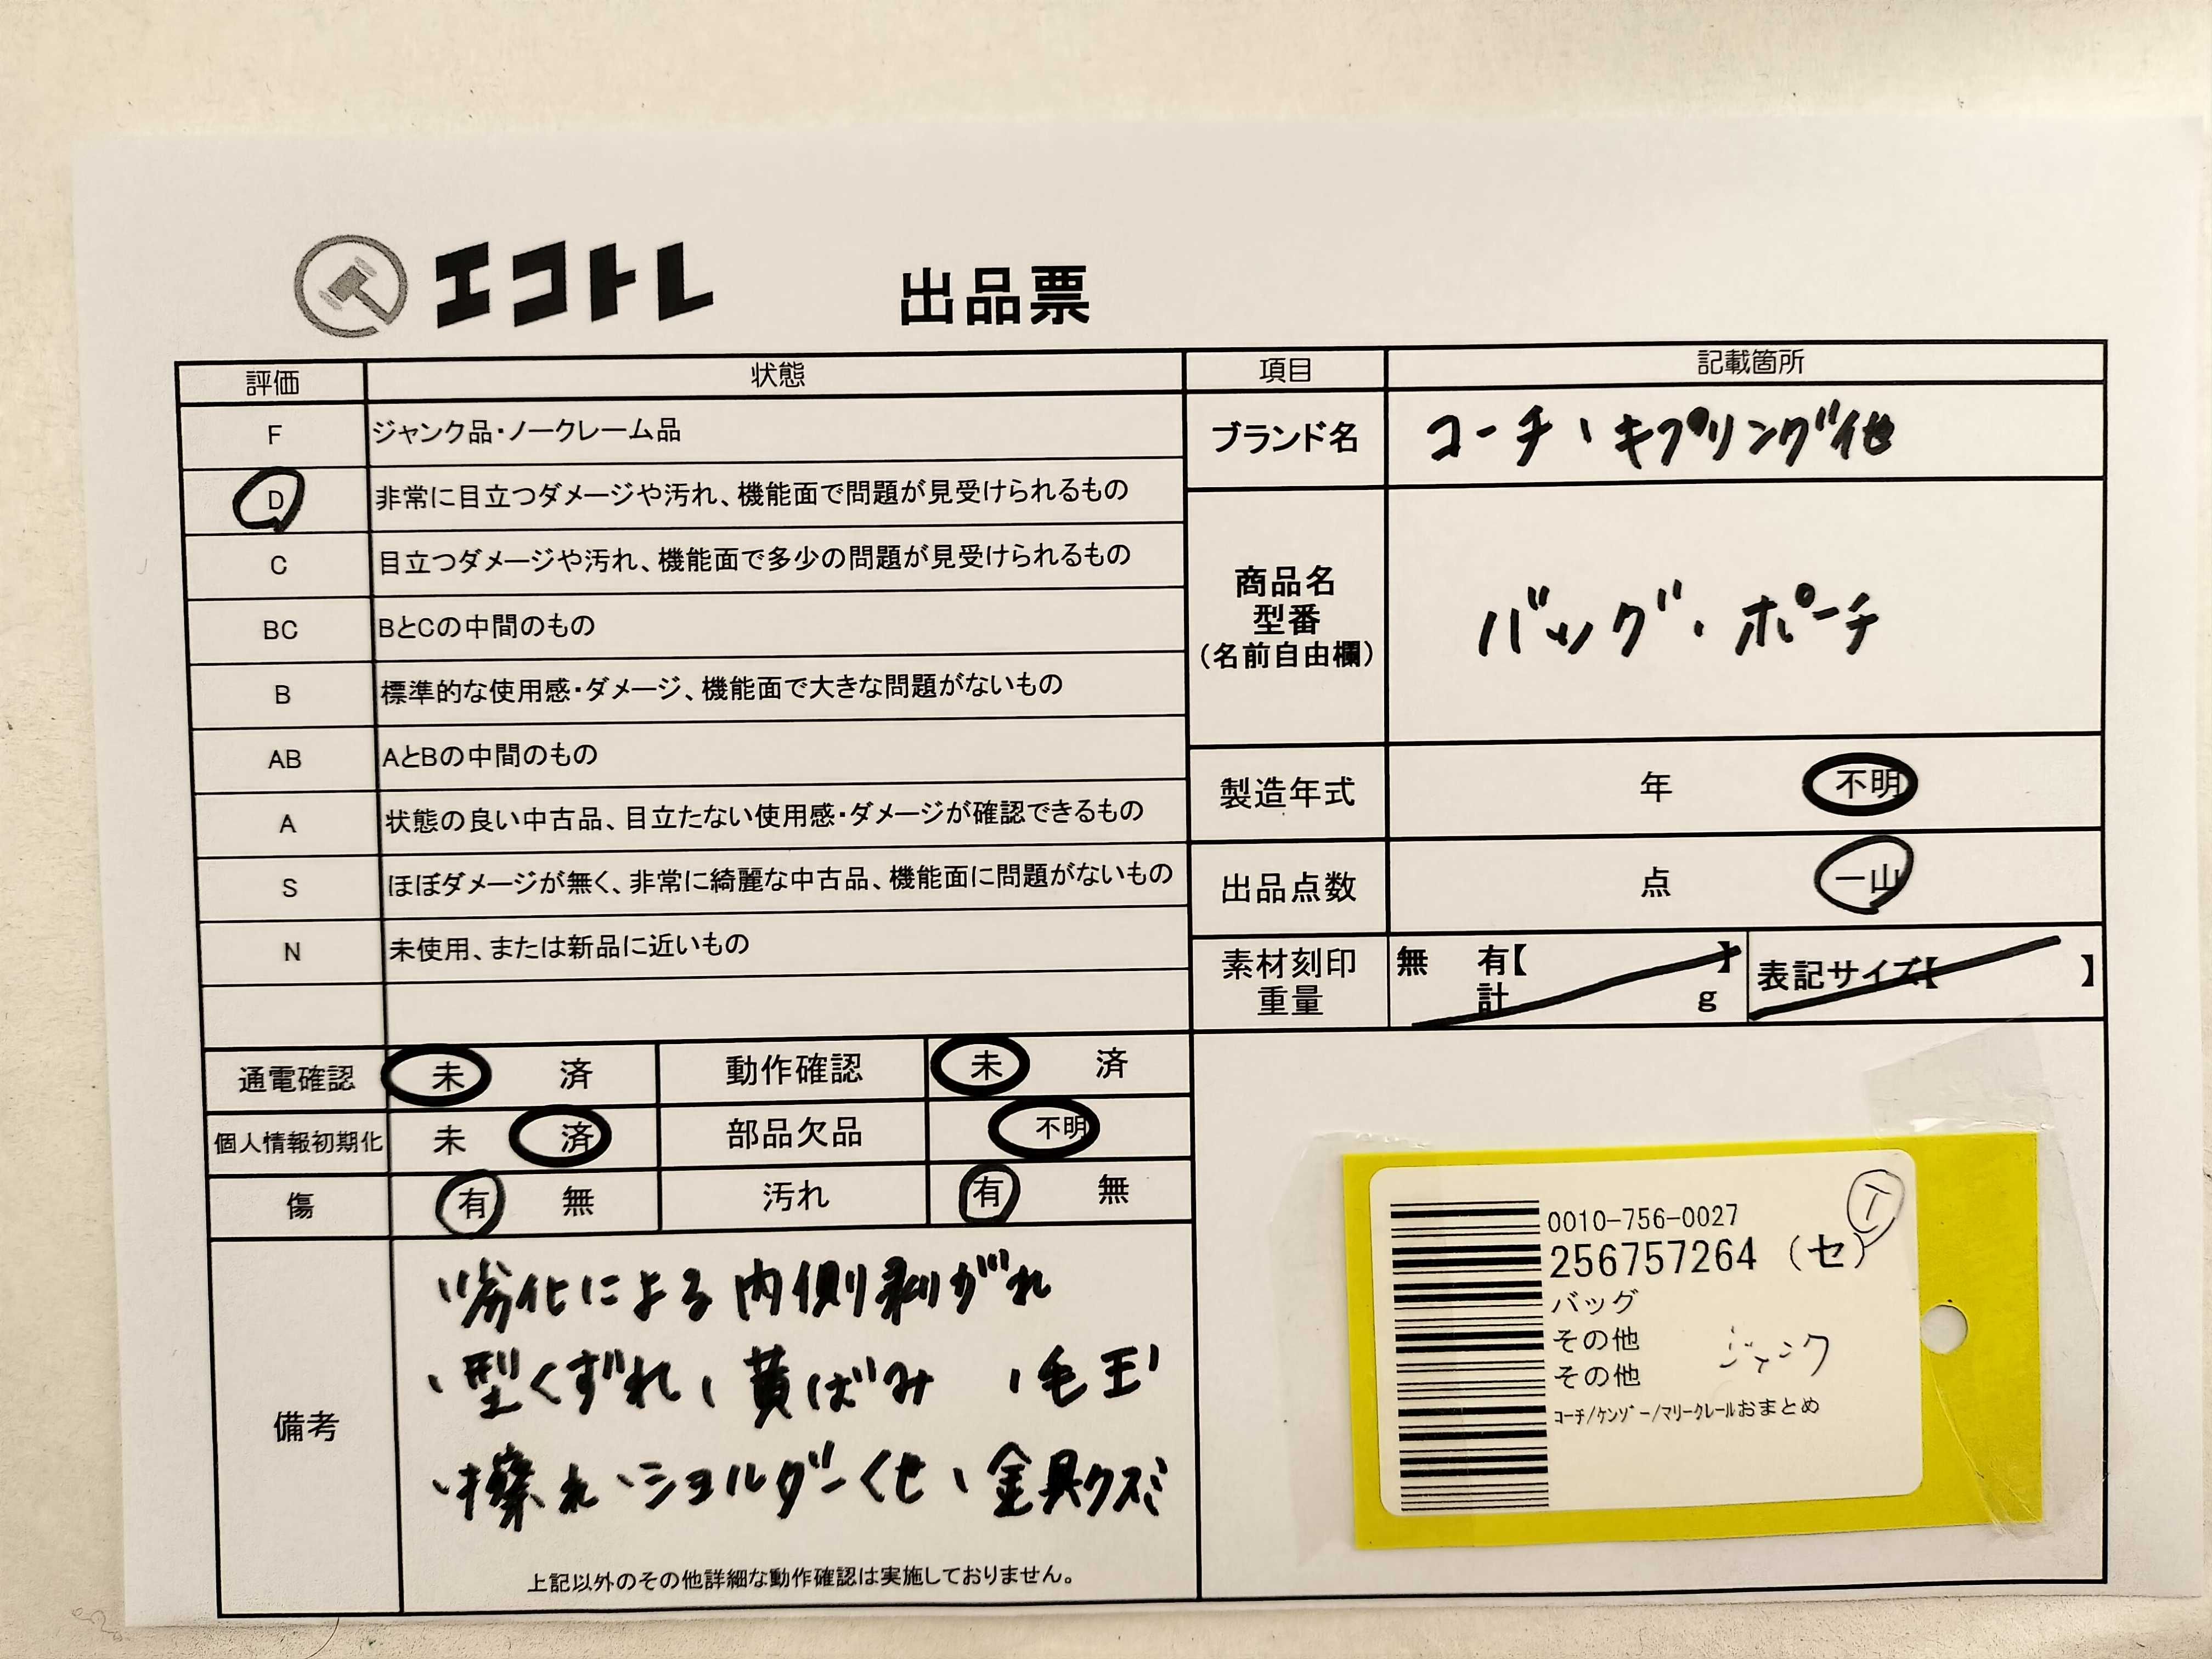 エコトレ 出品票
評価 状態
F ジャンク品・ノークレーム品
D 非常に目立つダメージや汚れ、機能面で問題が見受けられるもの
C 目立つダメージや汚れ、機能面で多少の問題が見受けられるもの
BC BとCの中間のもの
B 標準的な使用感・ダメージ、機能面で大きな問題がないもの
AB AとBの中間のもの
A 状態の良い中古品、目立たない使用感・ダメージが確認できるもの
S ほぼダメージが無く、非常に綺麗な中古品、機能面に問題がないもの
N 未使用、または新品に近いもの
項目 記載箇所
ブランド名 コーチ、キプリング他
商品名
型番
(名前自由欄)
バッグ、ポーチ
製造年式 年 不明
出品点数 点 一山
素材刻印 無 有【 】
重量 計 g
表記サイズ【 】
通電確認 未 済 動作確認 未 済
個人情報初期化 未 済 部品欠品 不明
傷 有 無 汚れ 有 無
備考
、劣化による内側剥がれ
、型くずれ、黄ばみ 、毛玉
、擦れ、ショルダーくせ、金具クスミ
上記以外のその他詳細な動作確認は実施しておりません。
0010-756-0027
256757264 (セ)
バッグ
その他
その他 ジャンク
コーチ/ケンゾー/マリークレールおまとめ